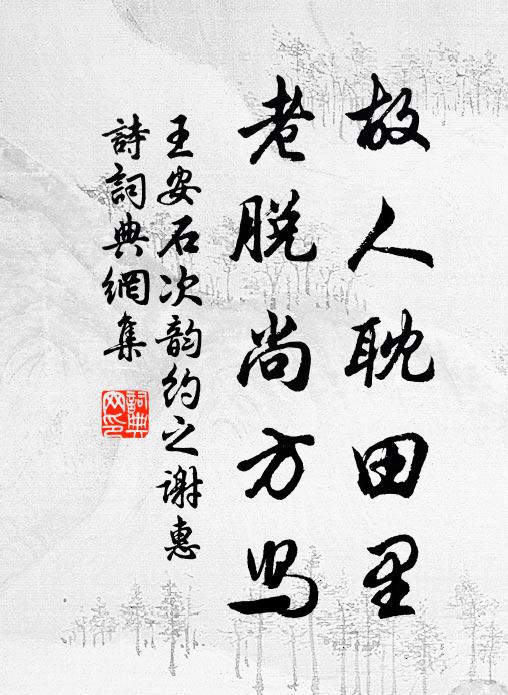 故人耽田里
老脱尚方舄
王安石次韻約之謝惠
詩詞典網集
詞典网印